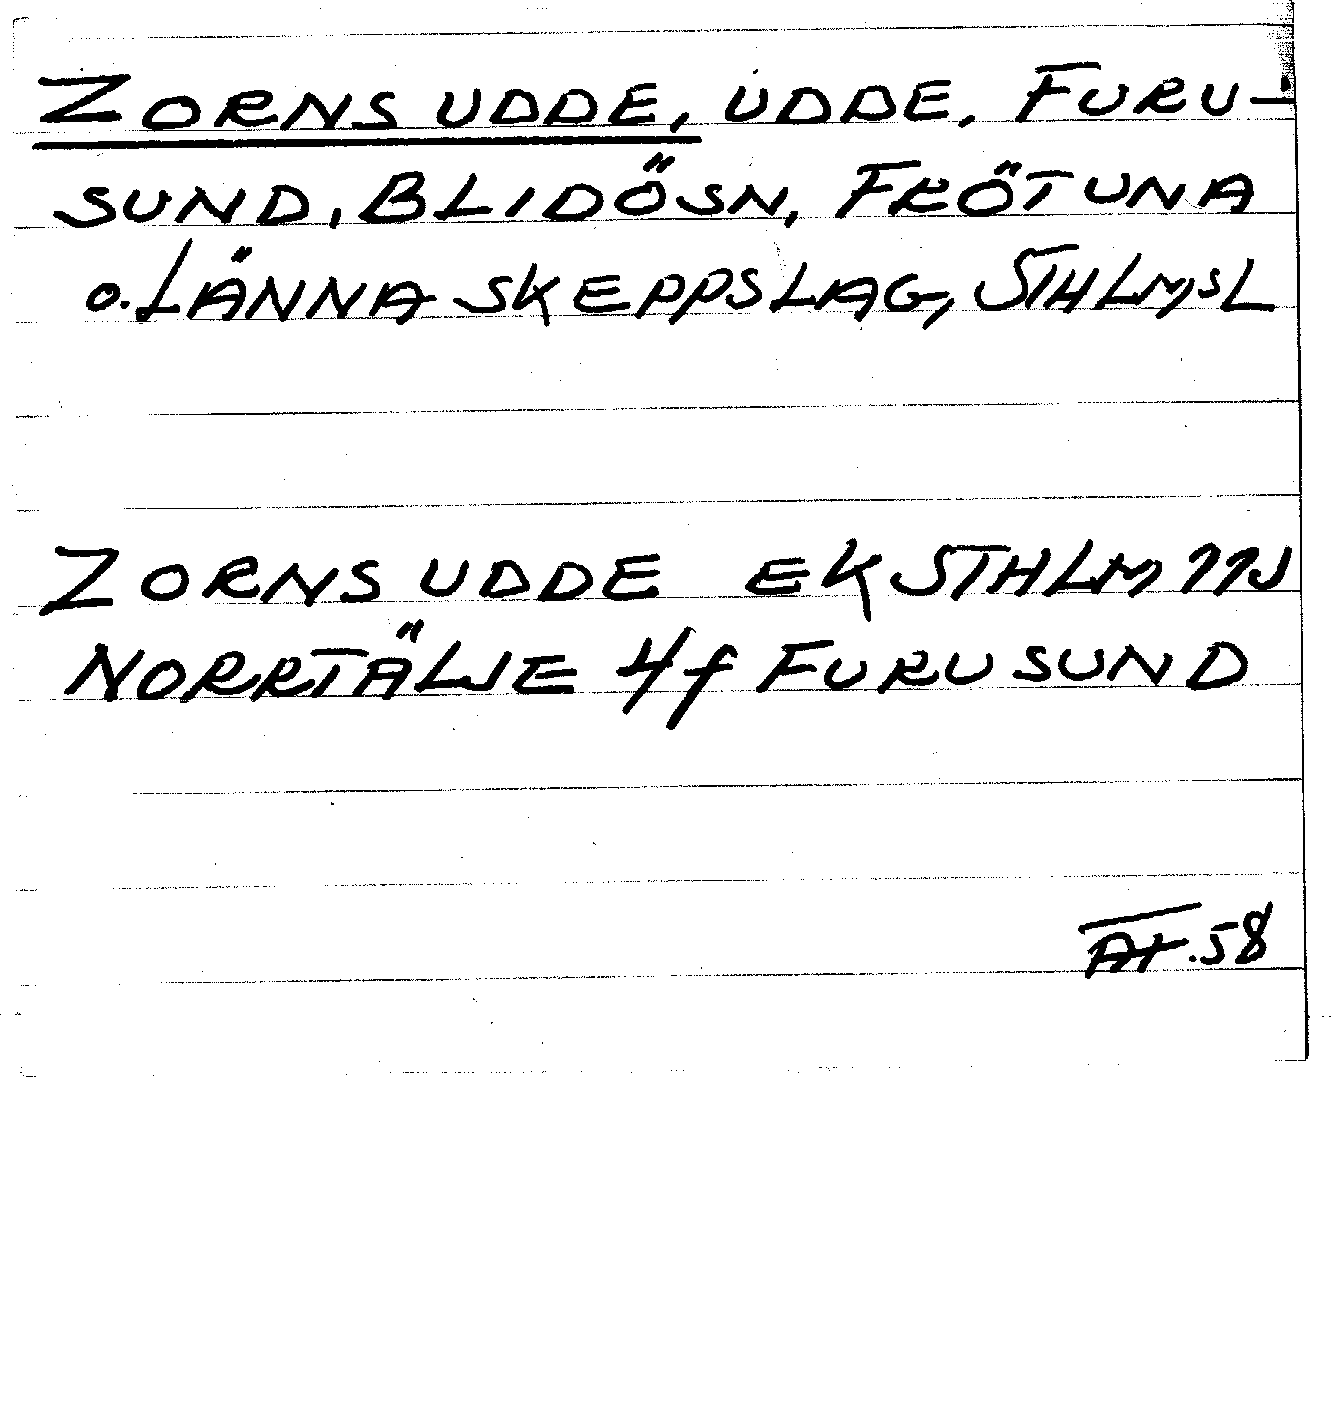 ZORNS UDDE, UDDE, FURU-
SUND, BLIDÖSN, FRÖTUNA
o. LÄNNA SKEPPSLAG, STHLMSL
ZORNS UDDE EK STHLM 11J
NORRTÄLJE 4f FURUSUND
AT.58